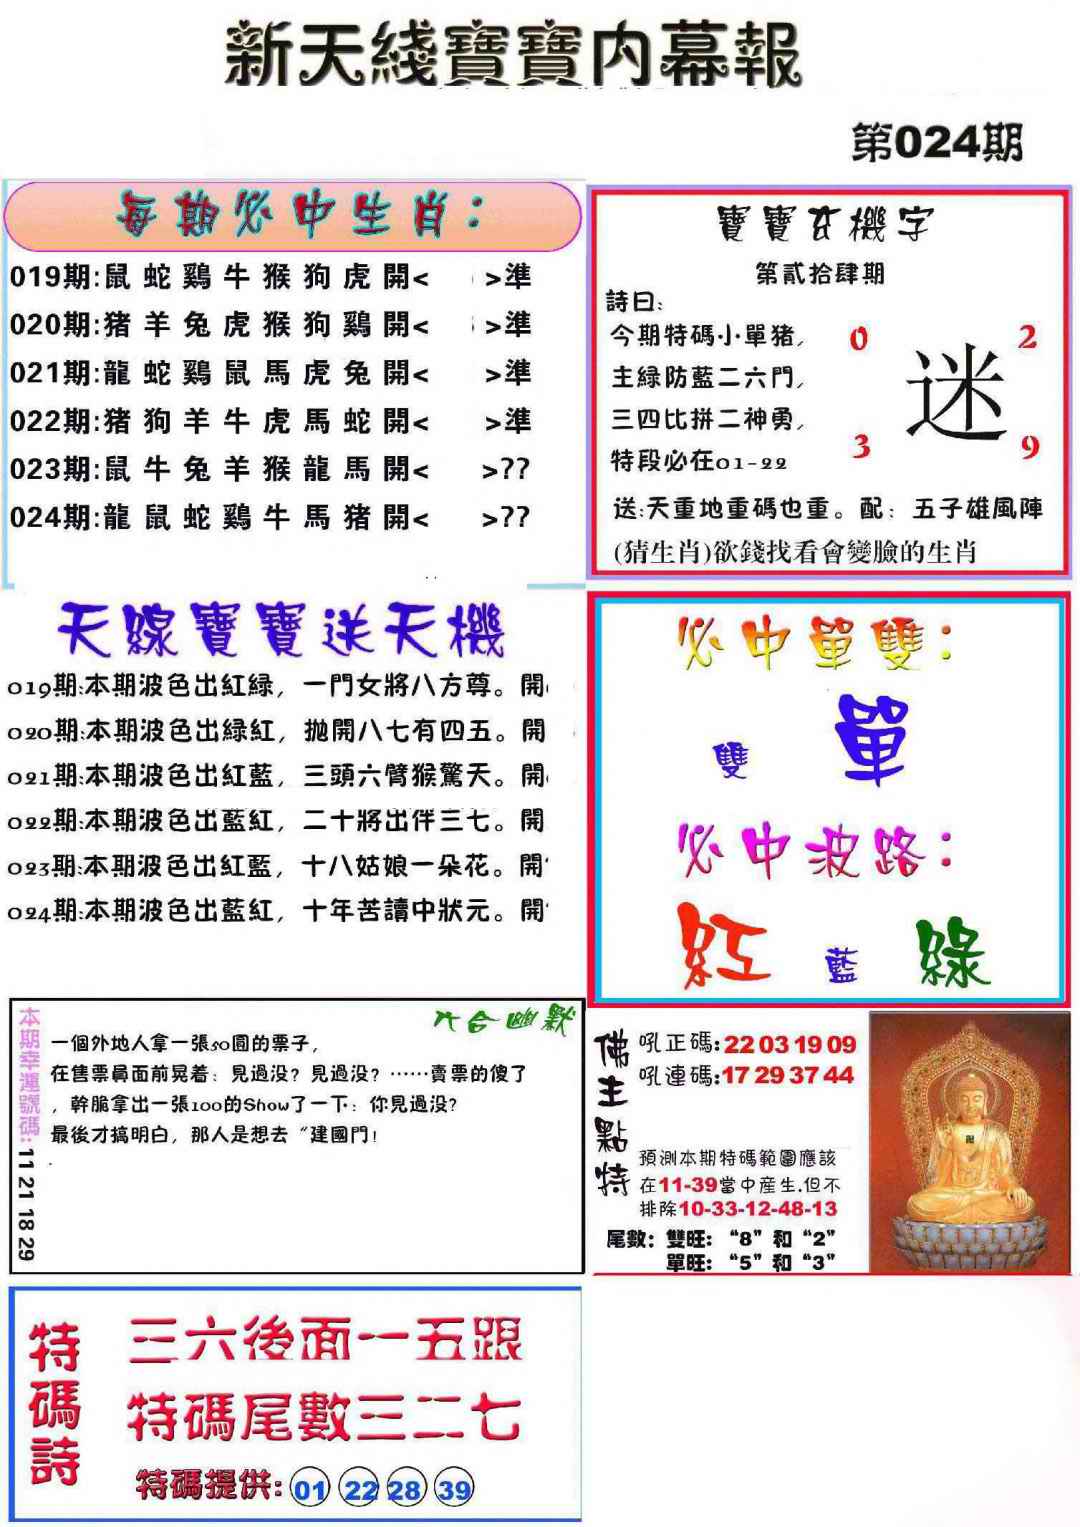 新天綫寶寶内幕報
第024期
每期必中生肖：
019期:鼠蛇鷄牛猴狗虎開< >準
020期:猪羊兔虎猴狗鷄開< >準
021期:龍蛇鷄鼠馬虎兔開< >準
022期:猪狗羊牛虎馬蛇開< >準
023期:鼠牛兔羊猴龍馬開< >??
024期:龍鼠蛇鷄牛馬猪開< >??
寶寶玄機字
第貳拾肆期
詩曰:
今期特碼小單猪,
主緑防藍二六門,
三四比拼二神勇,
特段必在01-22
0 2
迷
3 9
送:天重地重碼也重。配：五子雄風陣
(猜生肖)欲錢找看會變臉的生肖
天線寶寶送天機
019期:本期波色出紅緑，一門女將八方尊。開
020期:本期波色出緑紅，抛開八七有四五。開
021期:本期波色出紅藍，三頭六臂猴驚天。開
022期:本期波色出藍紅，二十將出伴三七。開
023期:本期波色出紅藍，十八姑娘一朵花。開
024期:本期波色出藍紅，十年苦讀中狀元。開
必中單雙：
雙 單
必中波路：
紅 藍 綠
本期幸運號碼:11 21 18 29
六合幽默
一個外地人拿一張50圓的票子，
在售票員面前晃着：見過没？見過没？……賣票的傻了
，幹脆拿出一張100的Show了一下：你見過没？
最後才搞明白，那人是想去“建國門！
佛主點特
吼正碼:22 03 19 09
吼連碼:17 29 37 44
預測本期特碼範圍應該
在11-39當中産生.但不
排除10-33-12-48-13
尾數：雙旺：“8”和“2”
單旺：“5”和“3”
特碼詩
三六後面一五跟
特碼尾數三二七
特碼提供: 01 22 28 39